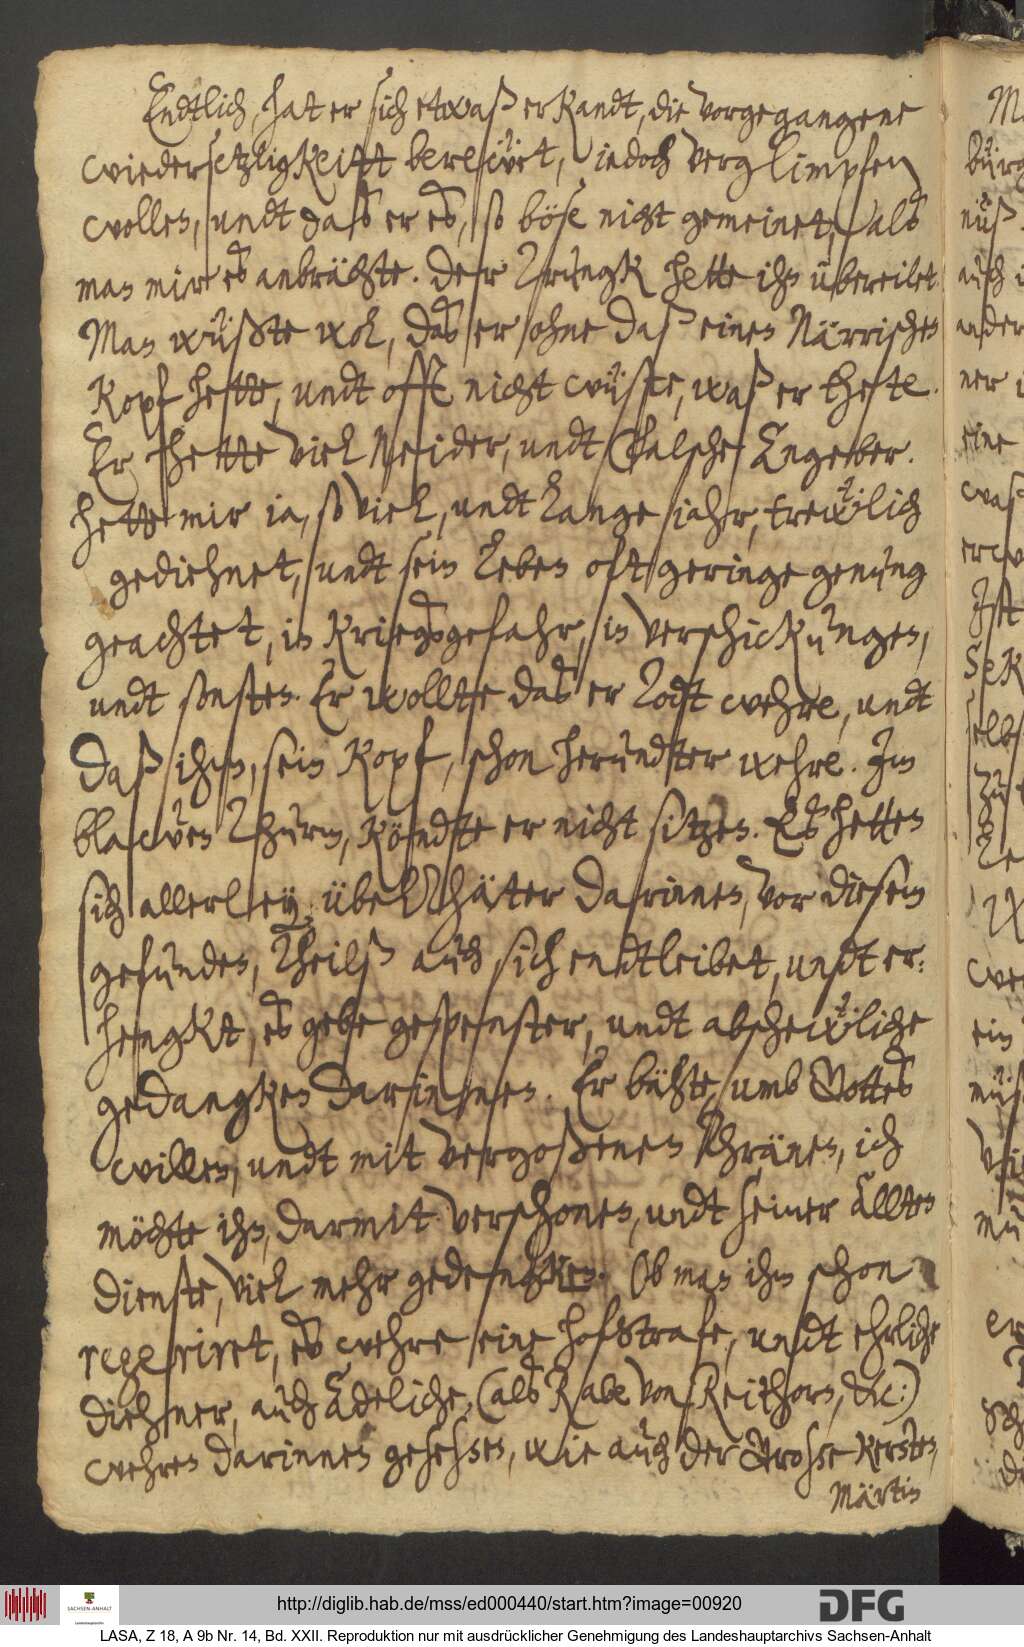 Endtlich, hat er sich etwaß erkandt, die vorgegangene
wiedersetzligkeitt berewet, iedoch verglimpfen
wollen, undt daß er es, so böse nicht gemeinet, als
man mir es anbrächte. der Trungk hette ihn übereilet
Man wüßte wol, das er ohne daß einen Närrischen
Kopf hette, undt offt nicht wüste, waß er thete.
Er hette viel Neider, undt falsche Angeber.
hette mir ia, so viel, undt lange iahr, trewlich
gediehnet, undt sein Leben oft geringe genung
geachtet, in Kriegsgefahr, in verschickungen,
undt sonsten. Er wollte das er Todt wehre, undt
daß ihm, sein Kopf, schon herundter wehre. Im
blawen Thurm, köndte er nicht sitzen. Es hetten
sich allerley übelThäter darinnen, vor diesem
gefunden, Theilß auch sich endtleibet, undt er-
hengkt, es gebe gespenster, undt abschewliche
gedangken darinnen. Er bähte, umb Gottes
willen, undt mit vergoßenen Thränen, ich
möchte ihn, darmit verschonen, undt seiner Alten
dienste, viel mehr gedengken. Ob man ihm schon
regerirt, es wehre eine hofstrafe, undt ehrliche
diehner, auch Adeliche, (als Rabe von Reithorn, &c:)
wehren darinnen gesessen, wie auch der Grosse Kersten,
Märtin
http://diglib.hab.de/mss/ed000440/start.htm?image=00920
SACHSEN-ANHALT
DFG
LASA, Z 18, A 9b Nr. 14, Bd. XXII. Reproduktion nur mit ausdrücklicher Genehmigung des Landeshauptarchivs Sachsen-Anhalt